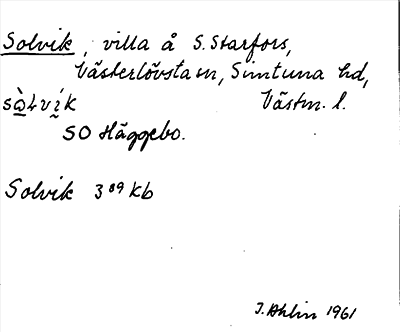 Solvik, villa å S. Starfors,
Västerlövsta sn, Simtuna hd,
sòlvík Västm. l.
SO Häggebo.
Solvik 3⁸⁹ kb
J. Ahlin 1961